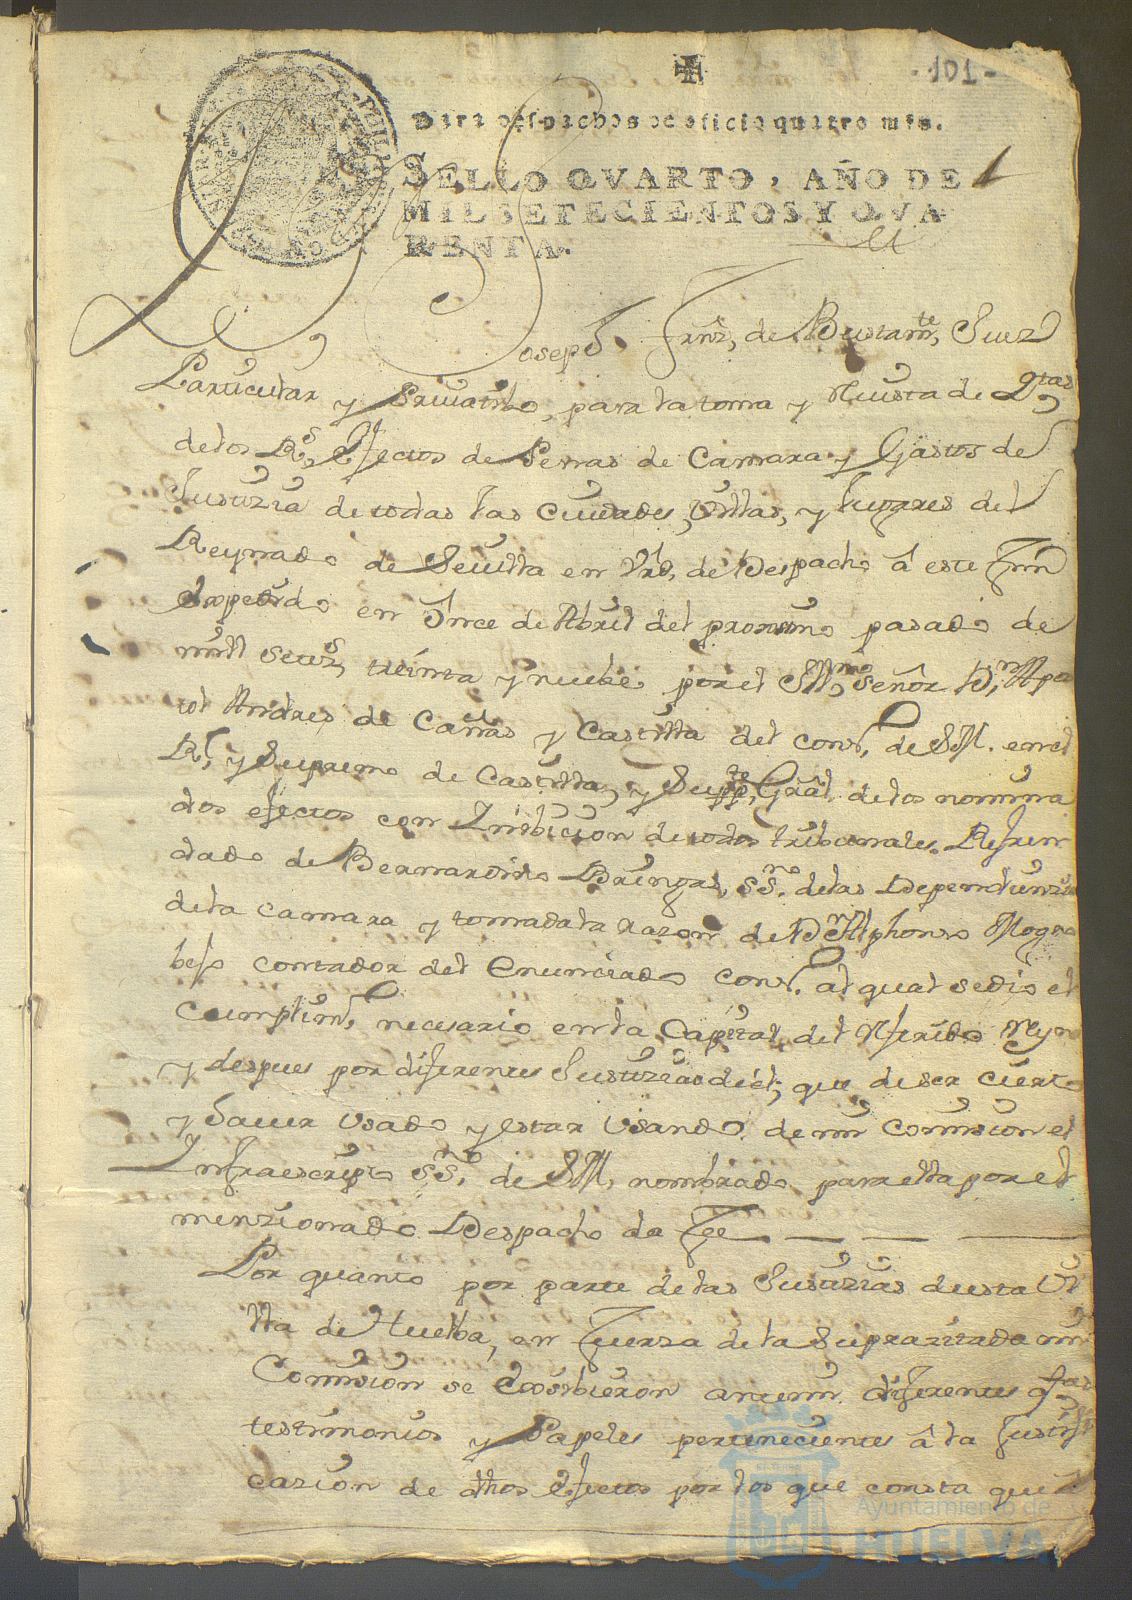 101
Para despachos de oficio quatro mrs.
SELLO QVARTO, AÑO DE
MIL SETECIENTOS Y QVA
RENTA.
Joseph Frnz, de Bustamte, Juez
Particular y Privatibo, para la toma y Revista de Qtas
de los Rs, Efectos de Penas de Camara y Gastos de
Justizia de todas las Ciudades, Villas, y Lugares del
Reynado de Sevilla en Vrd, de Despacho â este fin
Expedido en Once de Abril del proximo pasado de
mill setezs, treinta y nuebe por el Illmo, Señor Dn, Apos
tol Andres de Cañas y Castilla del Conso, de S.M. en el
Rl, y Supremo de Castilla, y Suppte, Gral. de los nomina
dos efectos con Inibicion de todos tribunales. Refren
dado de Bernardino Bringas, SSno. de las Dependienzias
de la camara y tomada la razon de Dn Alphonso Mogro
bejo contador del Enunciado Conso. al qual se dio el
Cumplimto, necesario en la Capital del Referido Reyno
y despues por diferentes Justizias de el; que de ser cierto
y haver Vsado y estar Vsando de mi Comision el
Infraescripto SSno. de S.M, nombrado para ella por el
menzionado Despacho da fee
Por quanto por parte de las Justizias de esta Vi
lla de Huelba, en fuerza de la Suprazitada mi
Comision se Exsibieron ante mi diferentes qtas
testimonios y Papeles pertenecientes â la Justifi
cazion de dhos Efectos por los que consta que
Ayuntamiento de
HUELVA